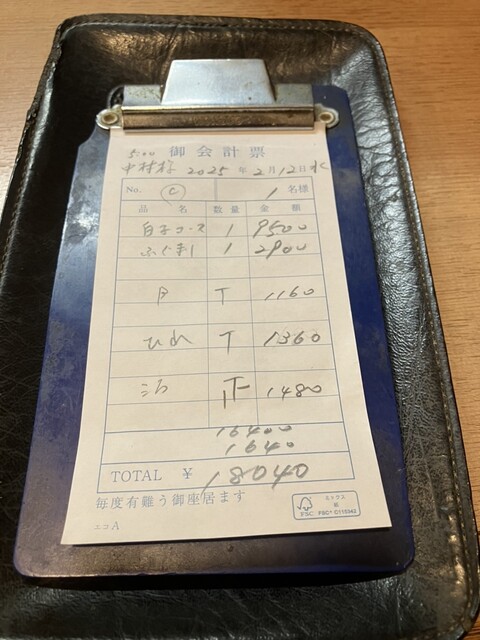 5:00 御会計票
中村様 2025年2月12日水
No. C 1名様
品名 数量 金額
白子コース 1 9500
ふぐさし 1 2900
T 1160
ひれ T 1360
1480
16400
1640
TOTAL ¥ 18040
毎度有難う御座居ます
エコA
ミックス
紙
FSC FSC® C115943